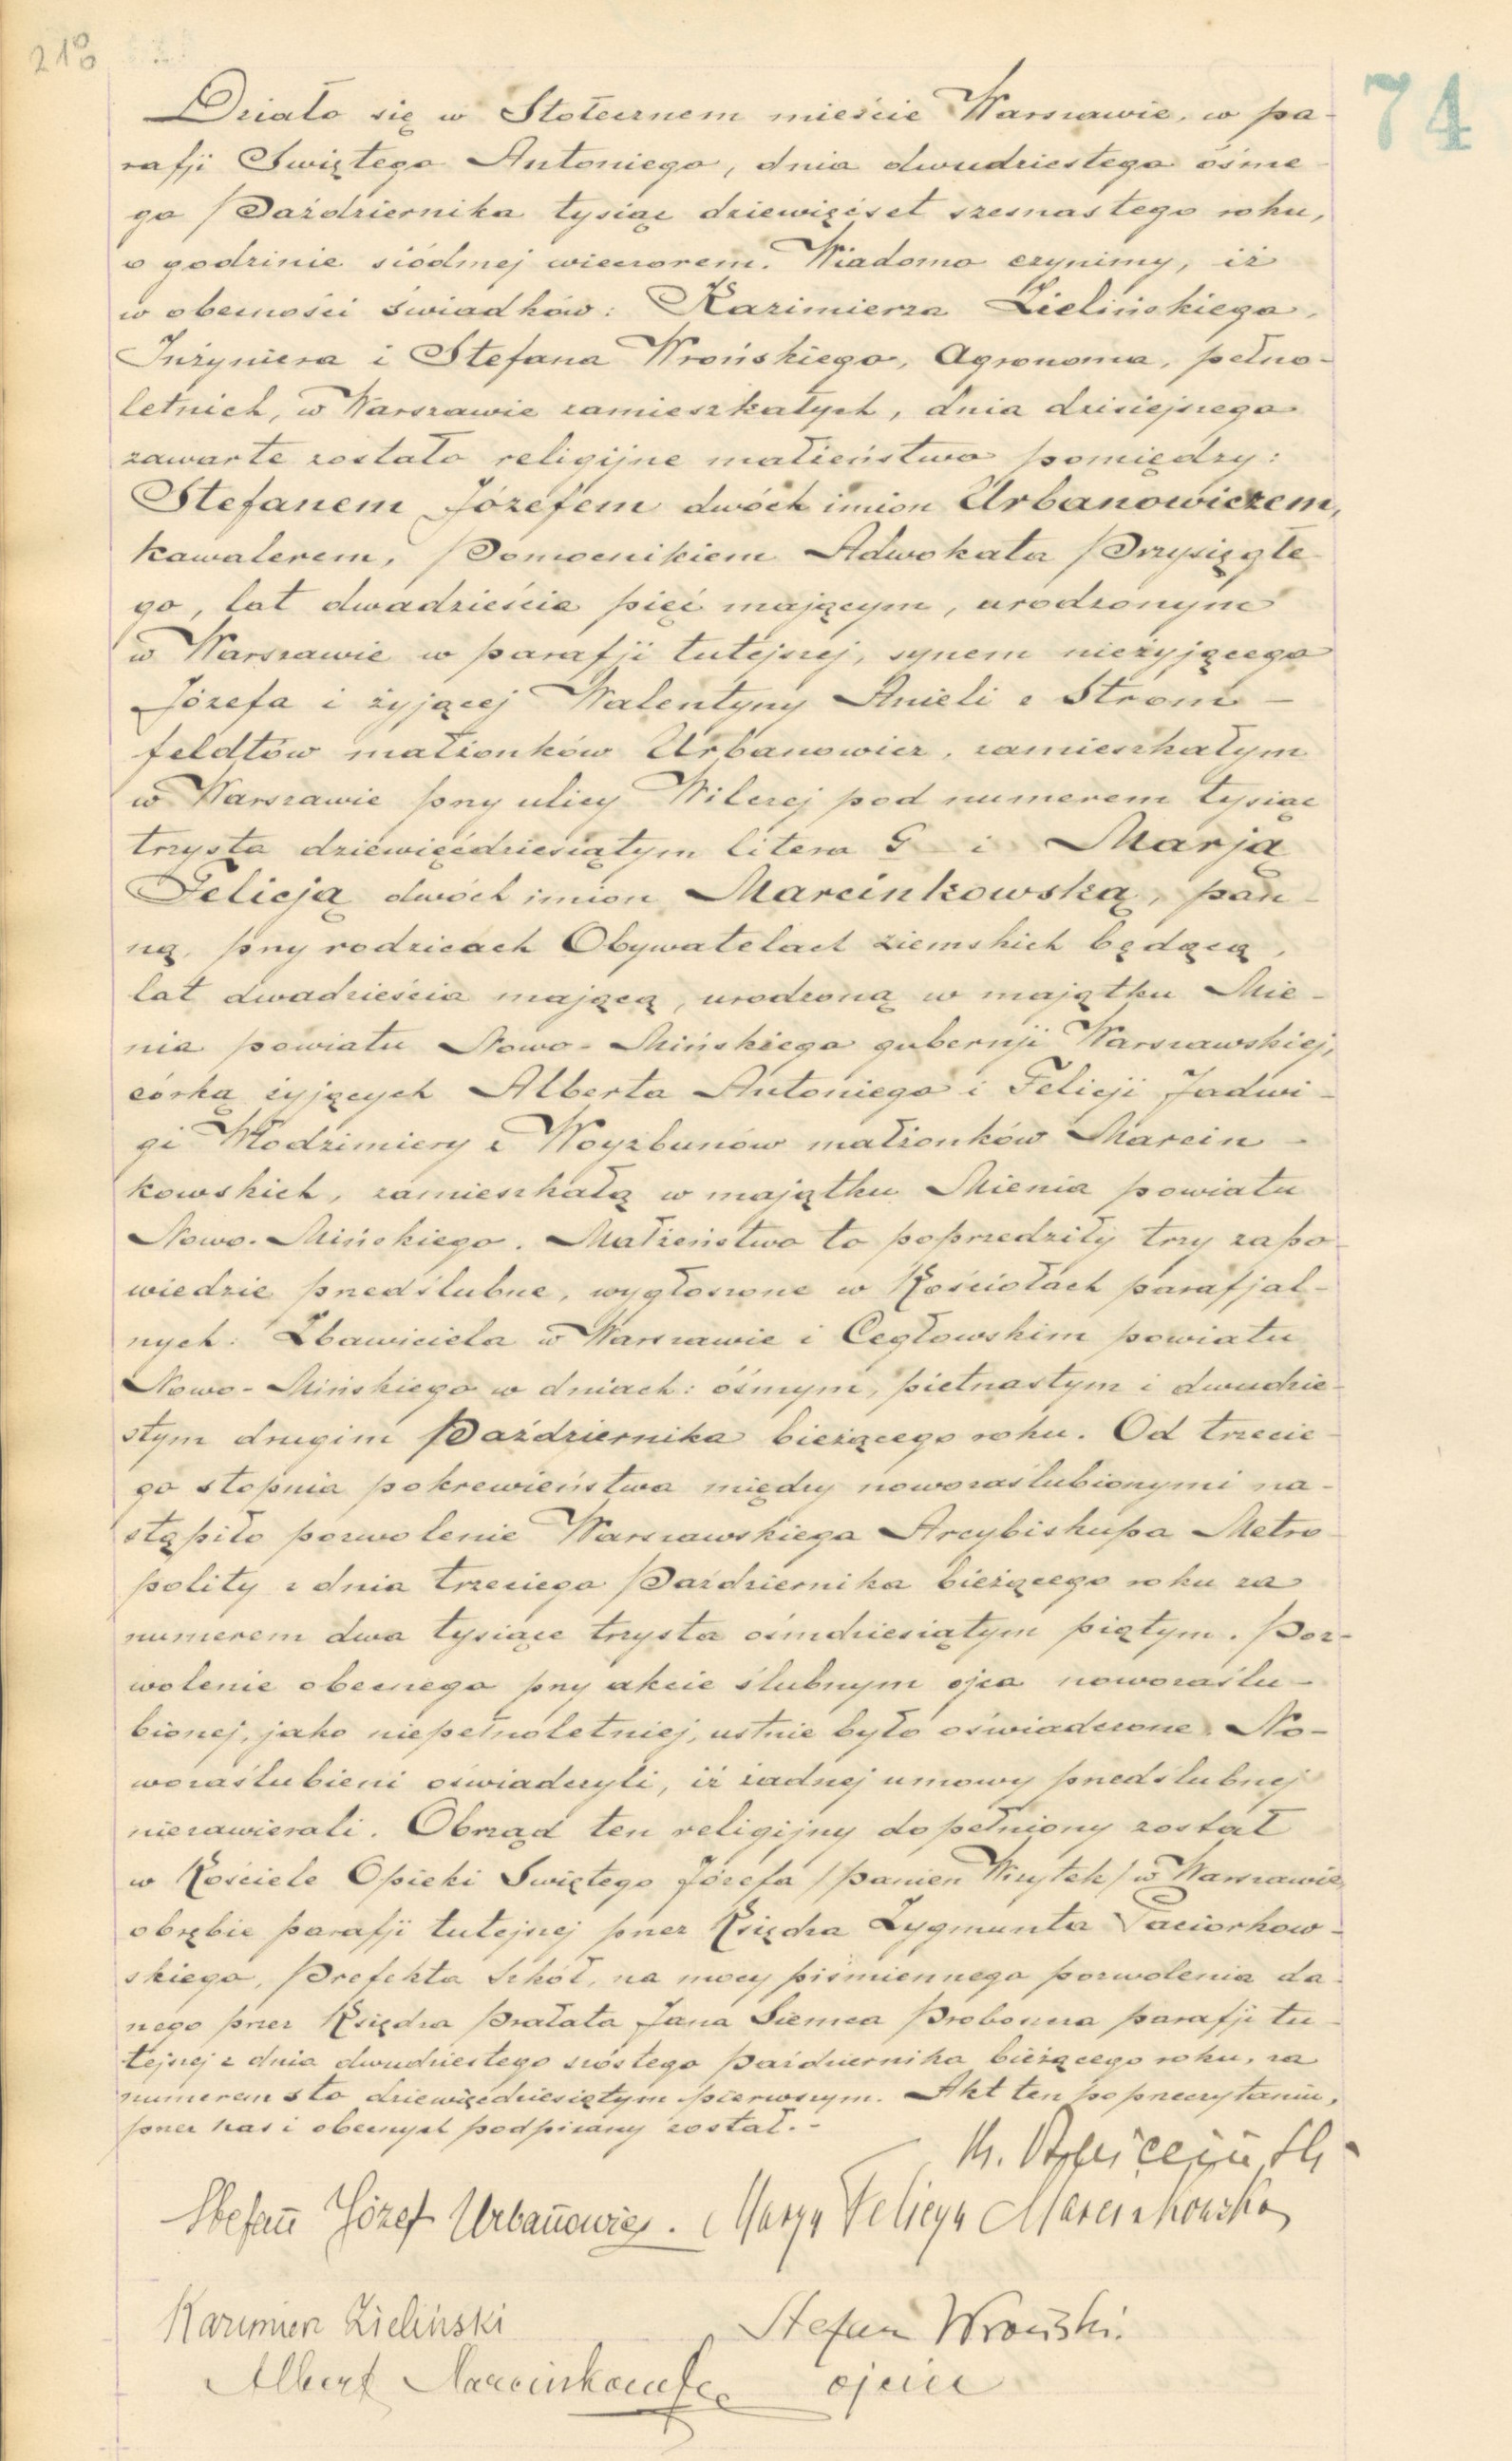 218
74
Działo się w Stołecznem mieście Warszawie, w pa-
rafji Świętego Antoniego, dnia dwudziestego ósme-
go Października tysiąc dziewięćset szesnastego roku,
o godzinie siódmej wieczorem. Wiadomo czynimy, iż
w obecności świadków: Kazimierza Zielińskiego,
Inżyniera i Stefana Wrońskiego, Agronoma, pełno-
letnich, w Warszawie zamieszkałych, dnia dzisiejszego
zawarte zostało religijne małżeństwo pomiędzy:
Stefanem Józefem dwóch imion Urbanowiczem,
kawalerem, Pomocnikiem Adwokata Przysięgłe-
go, lat dwadzieścia pięć mającym, urodzonym
w Warszawie w parafji tutejszej, synem nieżyjącego
Józefa i żyjącej Walentyny Anieli z Strom-
feldtów małżonków Urbanowicz, zamieszkałym
w Warszawie przy ulicy Wilczej pod numerem tysiąc
trzysta dziewięćdziesiątym litera G i Marją
Felicją dwóch imion Marcinkowską, pan-
ną, przy rodzicach Obywatelach ziemskich będącą,
lat dwadzieścia mającą, urodzoną w majątku Mie-
nia powiatu Nowo-Mińskiego gubernji Warszawskiej,
córką żyjących Alberta Antoniego i Felicji Jadwi-
gi Włodzimiery z Woyzbunów małżonków Marcin-
kowskich, zamieszkałą w majątku Mienia powiatu
Nowo-Mińskiego. Małżeństwo to poprzedziły trzy zapo-
wiedzie przedślubne, wygłoszone w Kościołach parafjal-
nych: Zbawiciela w Warszawie i Cegłowskim powiatu
Nowo-Mińskiego w dniach: ósmym, piętnastym i dwudzie-
stym drugim Października bieżącego roku. Od trzecie-
go stopnia pokrewieństwa między nowozaślubionymi na-
stąpiło pozwolenie Warszawskiego Arcybiskupa Metro-
polity z dnia trzeciego Października bieżącego roku za
numerem dwa tysiące trzysta ośmdziesiątym piątym. Poz-
wolenie obecnego przy akcie ślubnym ojca nowozaślu-
bionej, jako niepełnoletniej, ustnie było oświadczone. No-
wozaślubieni oświadczyli, iż żadnej umowy przedślubnej
niezawierali. Obrząd ten religijny dopełniony został
w Kościele Opieki Świętego Józefa /Panien Wizytek/ w Warszawie
obrębie parafji tutejszej przez Księdza Zygmunta Paciorkow-
skiego, Prefekta Szkół, na mocy piśmiennego pozwolenia da-
nego przez Księdza Prałata Jana Siemca Proboszcza parafji tu-
tejszej z dnia dwudziestego szóstego Października bieżącego roku, za
numerem sto dziewięćdziesiątym pierwszym. Akt ten po przeczytaniu,
przez nas i obecnych podpisany został.-
Stefan Józef Urbanowicz. Marya Felicya Marcinkowska
Kazimierz Zieliński
Stefan Wroński.
Albert Marcinkowski ojciec